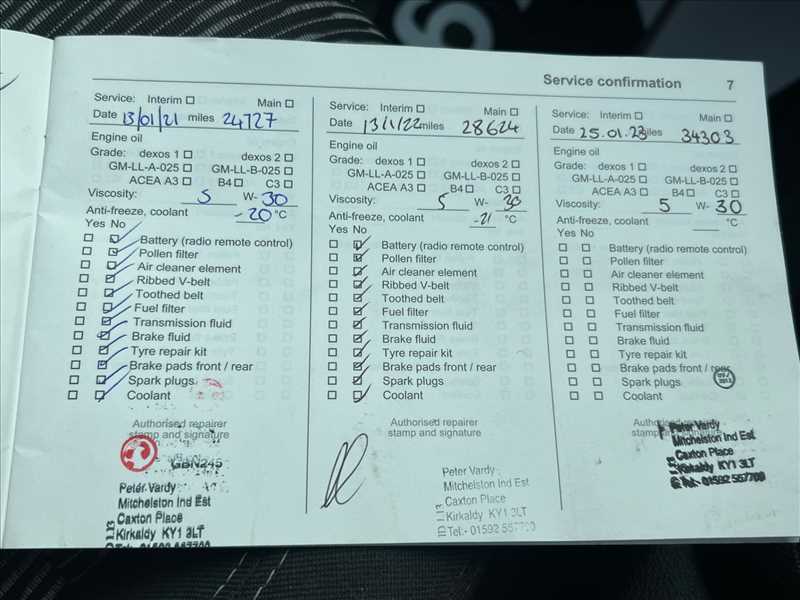 Service confirmation 7
Service: Interim Main
Date 13/01/21 miles 24727
Engine oil
Grade: dexos 1 dexos 2
GM-LL-A-025 GM-LL-B-025
ACEA A3 B4 C3
Viscosity: 5 W- 30
Anti-freeze, coolant -20 °C
Yes No
Battery (radio remote control)
Pollen filter
Air cleaner element
Ribbed V-belt
Toothed belt
Fuel filter
Transmission fluid
Brake fluid
Tyre repair kit
Brake pads front / rear
Spark plugs
Coolant
Authorised repairer
stamp and signature
GBN245
Peter Vardy
Mitchelston Ind Est
Caxton Place
Kirkaldy KY1 3LT
Tel:- 01592 567700
Service: Interim Main
Date 13/1/22 miles 28624
Engine oil
Grade: dexos 1 dexos 2
GM-LL-A-025 GM-LL-B-025
ACEA A3 B4 C3
Viscosity: 5 W- 30
Anti-freeze, coolant -21 °C
Yes No
Battery (radio remote control)
Pollen filter
Air cleaner element
Ribbed V-belt
Toothed belt
Fuel filter
Transmission fluid
Brake fluid
Tyre repair kit
Brake pads front / rear
Spark plugs
Coolant
Authorised repairer
stamp and signature
Peter Vardy
Mitchelston Ind Est
Caxton Place
Kirkaldy KY1 3LT
Tel:- 01592 567700
Service: Interim Main
Date 25.01.23 miles 34303
Engine oil
Grade: dexos 1 dexos 2
GM-LL-A-025 GM-LL-B-025
ACEA A3 B4 C3
Viscosity: 5 W- 30
Anti-freeze, coolant °C
Yes No
Battery (radio remote control)
Pollen filter
Air cleaner element
Ribbed V-belt
Toothed belt
Fuel filter
Transmission fluid
Brake fluid
Tyre repair kit
Brake pads front / rear
Spark plugs
Coolant
Peter Vardy
Mitchelston Ind Est
Caxton Place
Kirkaldy KY1 3LT
Tel:- 01592 567700